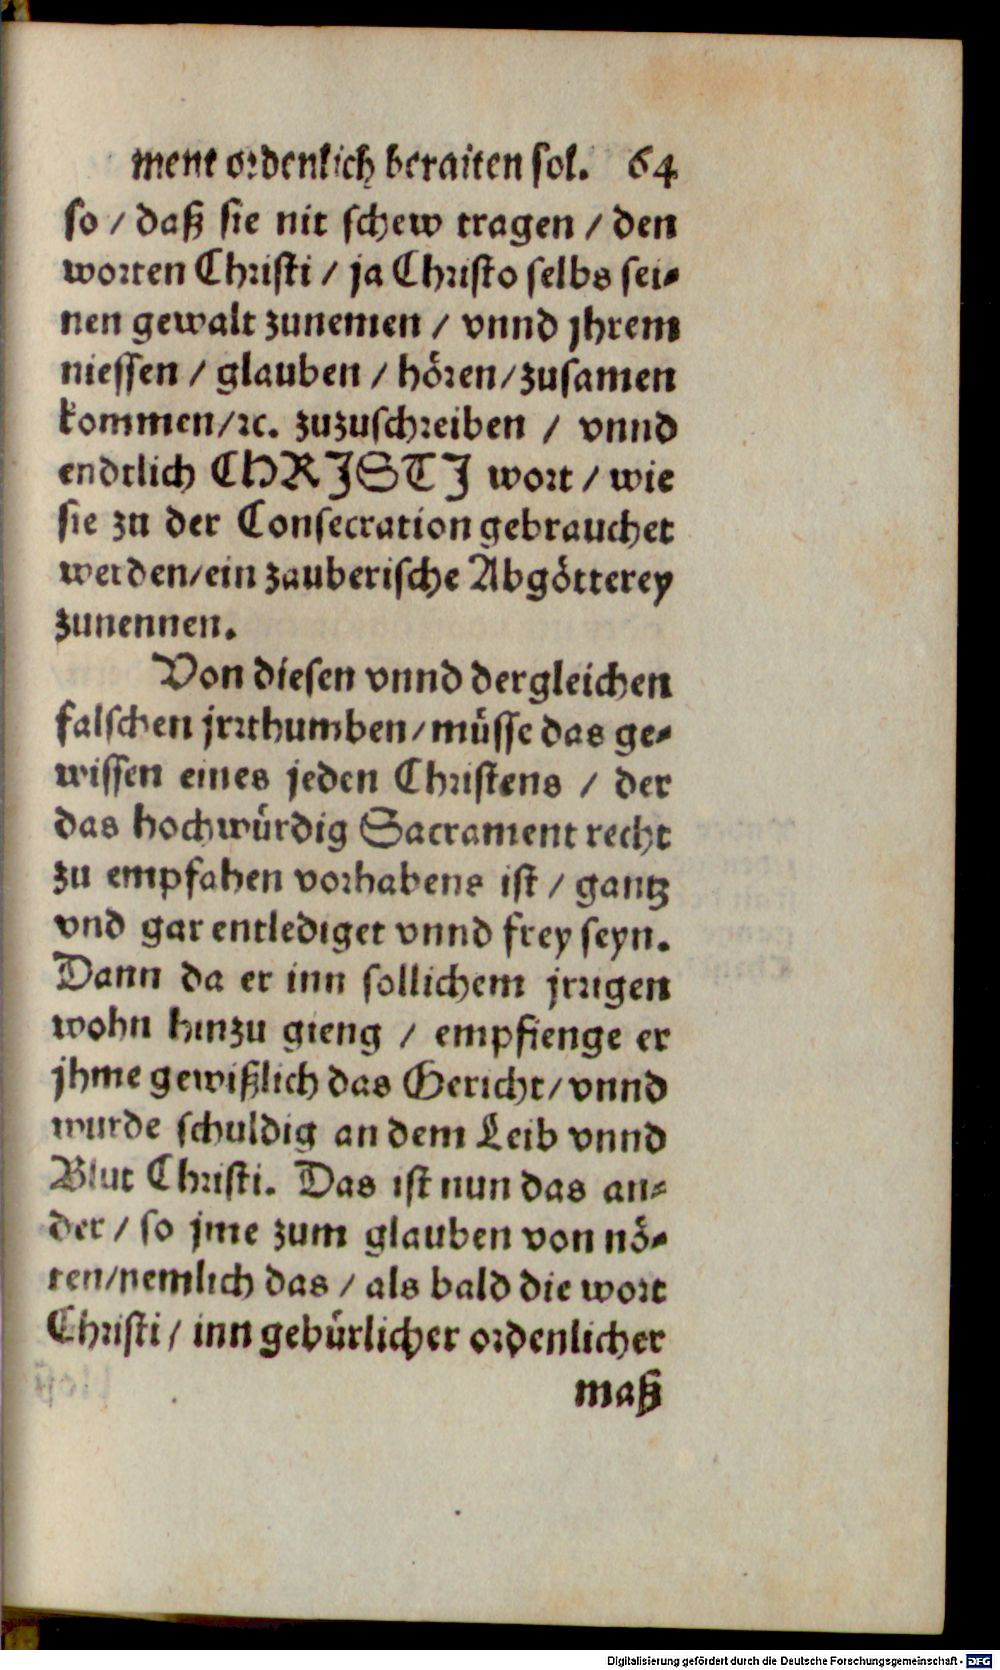 ment ordenlich beraiten sol. 64
so / daß sie nit schew tragen / den
worten Christi / ja Christo selbs sei-
nen gewalt zunemen / vnnd jhrem
niessen / glauben / hören / zusamen
kommen / ꝛc. zuzuschreiben / vnnd
endtlich CHRISTI wort / wie
sie zu der Consecration gebrauchet
werden / ein zauberische Abgötterey
zunennen.
Von diesen vnnd dergleichen
falschen jrrthumben / müsse das ge-
wissen eines jeden Christens / der
das hochwürdig Sacrament recht
zu empfahen vorhabens ist / gantz
vnd gar entlediget vnnd frey seyn.
Dann da er inn sollichem jrrigen
wohn hinzu gieng / empfienge er
jhme gewißlich das Gericht / vnnd
wurde schuldig an dem Leib vnnd
Blut Christi. Das ist nun das an-
der / so jme zum glauben von nö-
ten / nemlich das / als bald die wort
Christi / inn gebürlicher ordenlicher
maß
Digitalisierung gefördert durch die Deutsche Forschungsgemeinschaft - DFG